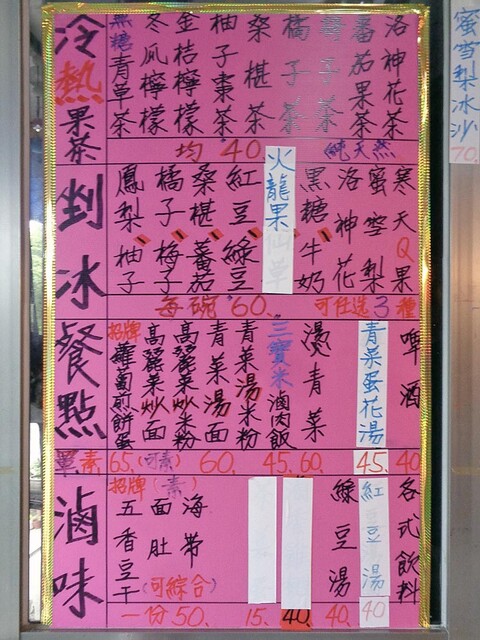 冷熱果茶
洛神花茶
蕃茄果茶
子茶
橘子茶
桑椹茶
柚子棗茶
金桔檸檬
冬瓜檸檬
無糖青草茶
均40
純天然
剉冰
寒天Q果
蜜雪梨
洛神花
黑糖牛奶
火龍果
紅豆 綠豆
桑椹 蕃茄
橘子 梅子
鳳梨 柚子
每碗60、
可任選3種
餐點
啤酒
青菜蛋花湯
燙青菜
三寶米滷肉飯
青菜湯米粉
青菜湯面
高麗菜炒米粉
高麗菜炒面
招牌蘿蔔煎餅蛋
素65、(可素)
60、
45、
60、
45、
40
滷味
各式飲料
紅豆湯
綠豆湯
海帶
面肚
五香豆干
招牌(素)
(可綜合)
一份50、
15、
40、
40、
40
蜜雪梨冰沙
70、